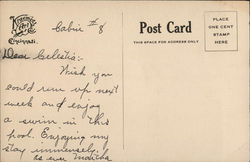 Kraemer Art Co.
Cincinnati.
Cabin #8
Post Card
THIS SPACE FOR ADDRESS ONLY
PLACE
ONE CENT
STAMP
HERE
Dear Celestia:-
Wish you
could run up next
week and enjoy
a swim in this
pool. Enjoying my
stay immensely.
as ever